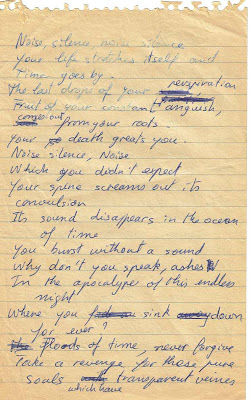 Noise, silence, noise silence
Your life stretches itself and
Time goes by.
The last drops of your respiration
Fruit of your constant anguish,
from your roots.
Your death greats you
Noise silence, Noise
Which you didn't expect
Your spine screams out its
convulsion
Its sound disappears in the ocean
of time
You burst without a sound
Why don't you speak, ashes
In the apocalypse of this endless
night
Where you sink down
for ever?
Floods of time, never forgive
Take a revenge for these pure
souls which have transparent veines